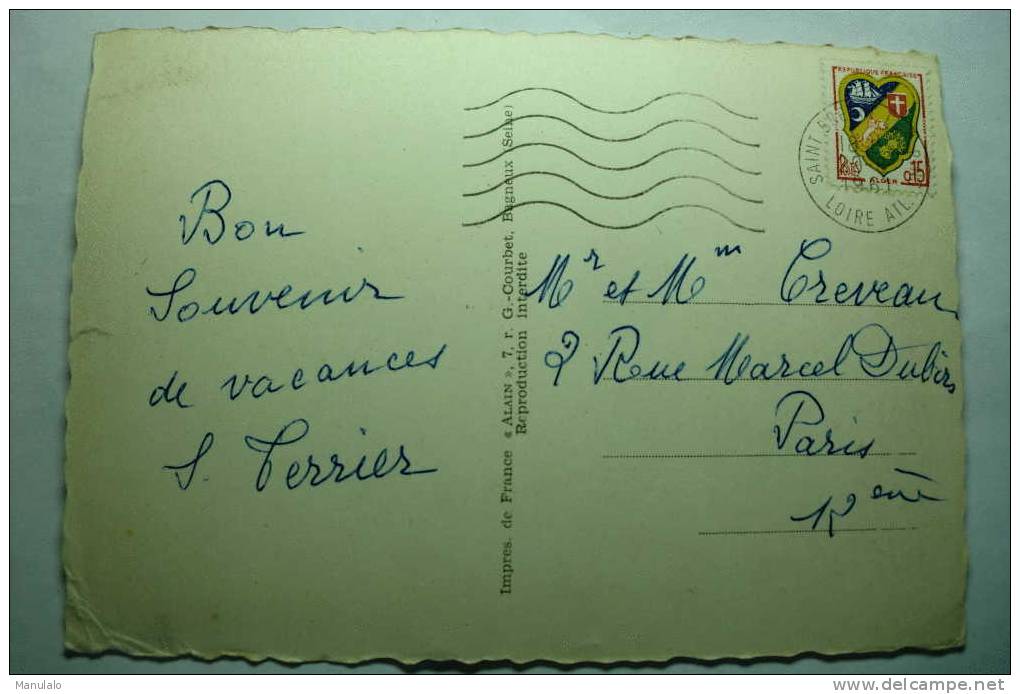 Bon
Souvenir
de vacances
S. Terrier
Impres. de France « ALAIN », 7, r. G.-Courbet, Bagneux (Seine)
Reproduction interdite
REPUBLIQUE FRANÇAISE
0,15
ALGER
SAINT
LOIRE ATL.
Mr et Mm Creveau
2 Rue Marcel Dubois
Paris
12ème
Manulalo
delcampe.net